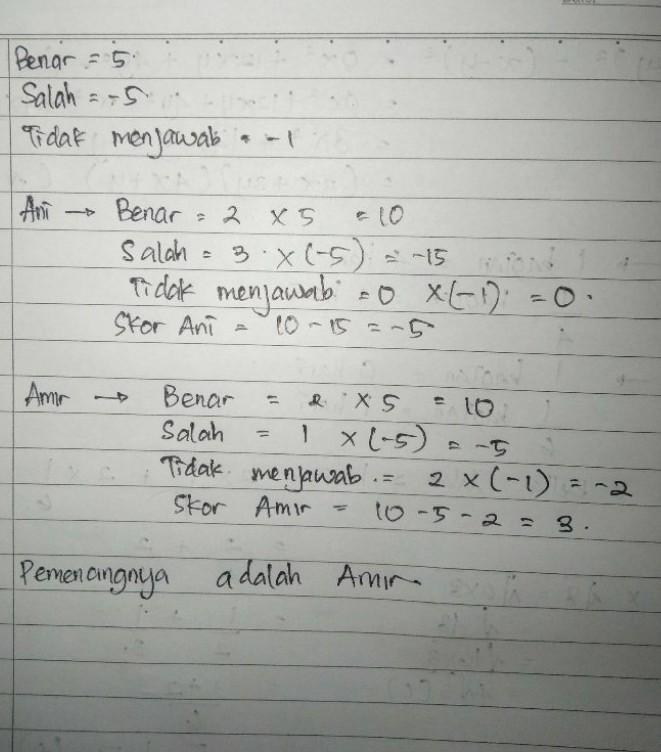 Benar = 5
Salah = -5
Tidak menjawab = -1
Ani → Benar = 2 x 5 = 10
Salah = 3 x (-5) = -15
Tidak menjawab = 0 x (-1) = 0.
Skor Ani = 10 - 15 = -5
Amir → Benar = 2 x 5 = 10
Salah = 1 x (-5) = -5
Tidak menjawab = 2 x (-1) = -2
Skor Amir = 10 - 5 - 2 = 3.
Pemenangnya adalah Amir.